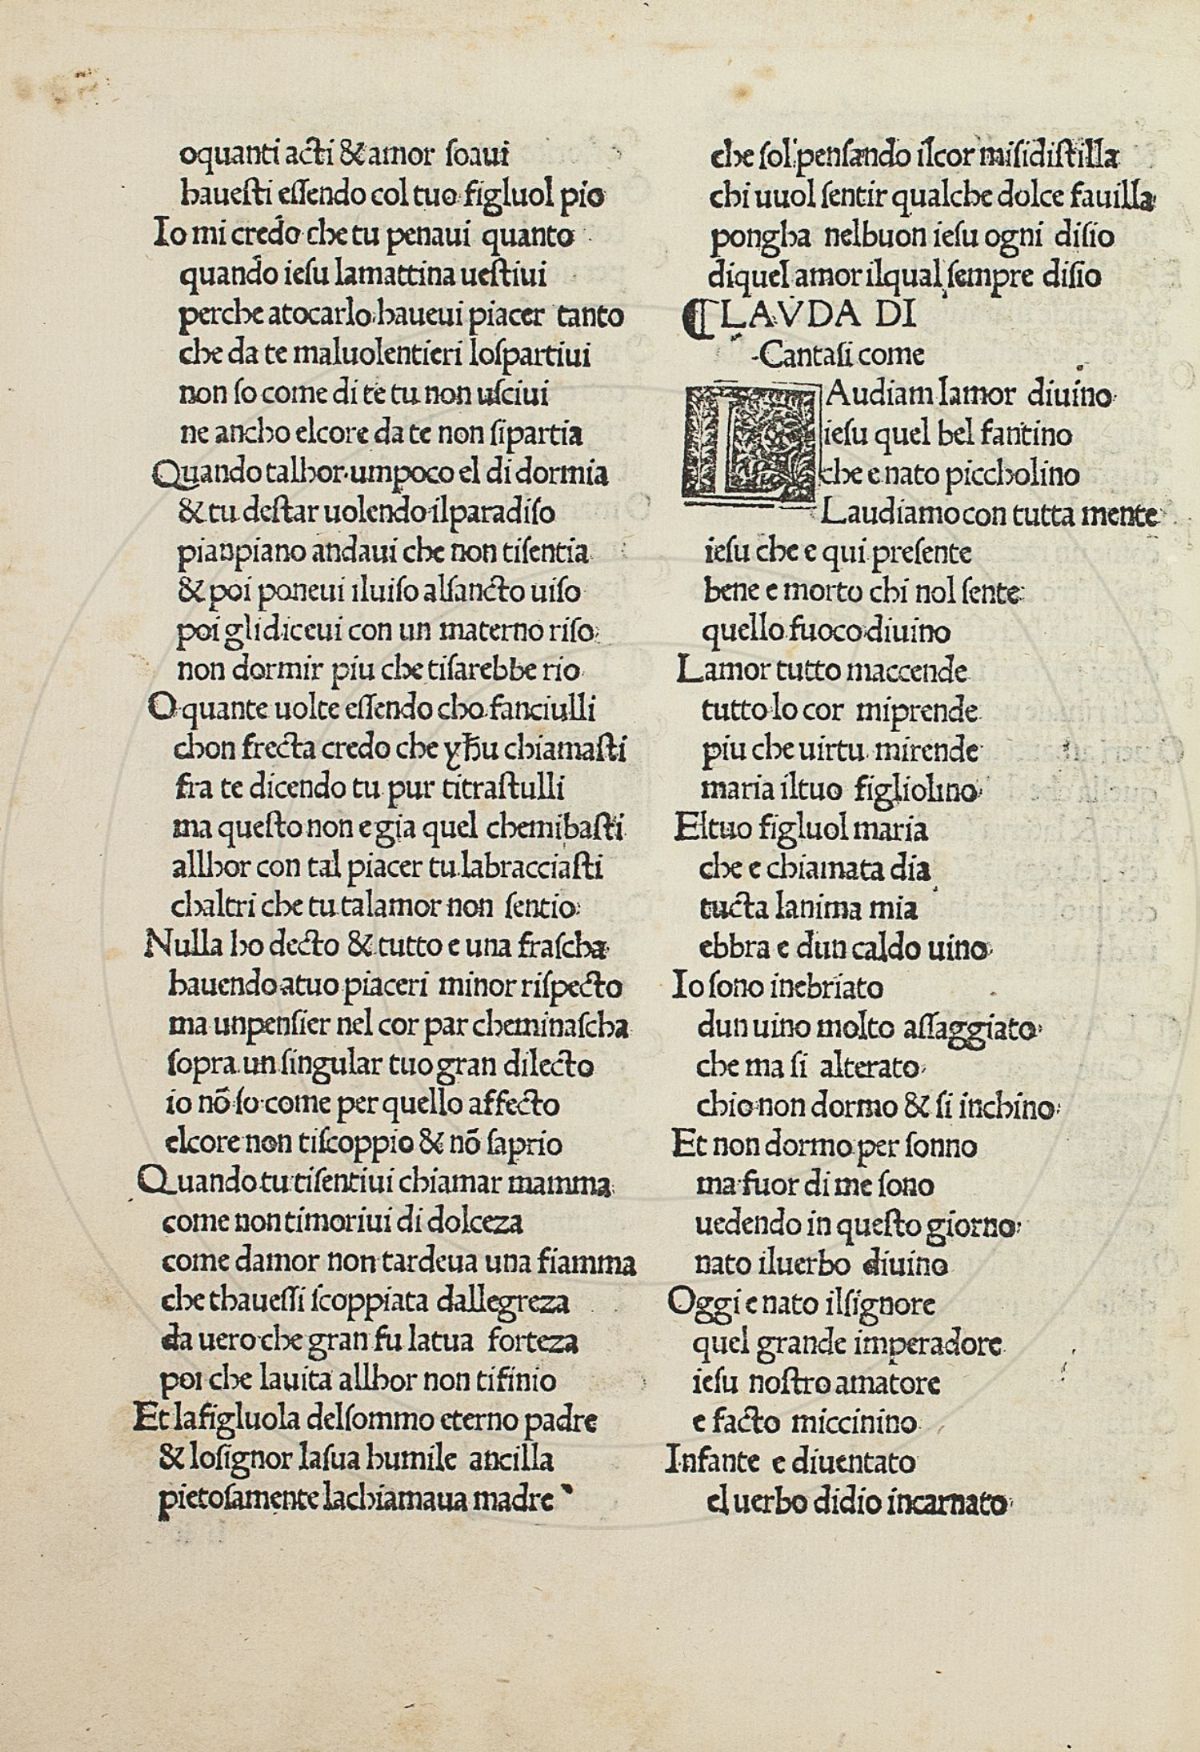 oquanti acti & amor ſoaui
haueſti eſſendo col tuo figluol pio
Io mi credo che tu penaui quanto
quando ieſu lamattina ueſtiui
perche atocarlo haueui piacer tanto
che da te maluolentieri loſpartiui
non ſo come di te tu non uſciui
ne ancho elcore da te non ſipartia
Quando talhor umpoco el di dormia
& tu deſtar uolendo ilparadiſo
pianpiano andaui che non tiſentia
& poi poneui iluiſo alſancto uiſo
poi glidiceui con un materno riſo
non dormir piu che tiſarebbe rio
O quante uolte eſſendo cho fanciulli
chon frecta credo che yħu chiamaſti
fra te dicendo tu pur titraſtulli
ma queſto non e gia quel chemibaſti
allhor con tal piacer tu labracciaſti
chaltri che tu talamor non ſentio
Nulla ho decto & tutto e una fraſcha
hauendo atuo piaceri minor riſpecto
ma unpenſier nel cor par cheminaſcha
ſopra un ſingular tuo gran dilecto
io nõ ſo come per quello affecto
elcore non tiſcoppio & nõ ſaprio
Quando tu tiſentiui chiamar mamma
come non timoriui di dolceza
come damor non tardeua una fiamma
che thaueſſi ſcoppiata dallegreza
da uero che gran fu latua forteza
poi che lauita allhor non tifinio
Et lafigluola delſommo eterno padre
& loſignor laſua humile ancilla
pietoſamente lachiamaua madre
che ſol penſando ilcor miſidiſtilla
chi uuol ſentir qualche dolce fauilla
pongha nelbuon ieſu ogni diſio
diquel amor ilqual ſempre diſio
¶LAVDA DI
Cantaſi come
LAudiam lamor diuino
ieſu quel bel fantino
che e nato piccholino
Laudiamo con tutta mente
ieſu che e qui preſente
bene e morto chi nol ſente
quello fuoco diuino
Lamor tutto maccende
tutto lo cor miprende
piu che uirtu mirende
maria iltuo figliolino
Eltuo figluol maria
che e chiamata dia
tucta lanima mia
ebbra e dun caldo uino
Io ſono inebriato
dun uino molto aſſaggiato
che ma ſi alterato
chio non dormo & ſi inchino
Et non dormo per ſonno
ma fuor di me ſono
uedendo in queſto giorno
nato iluerbo diuino
Oggi e nato ilſignore
quel grande imperadore
ieſu noſtro amatore
e facto miccinino
Infante e diuentato
el uerbo didio incarnato